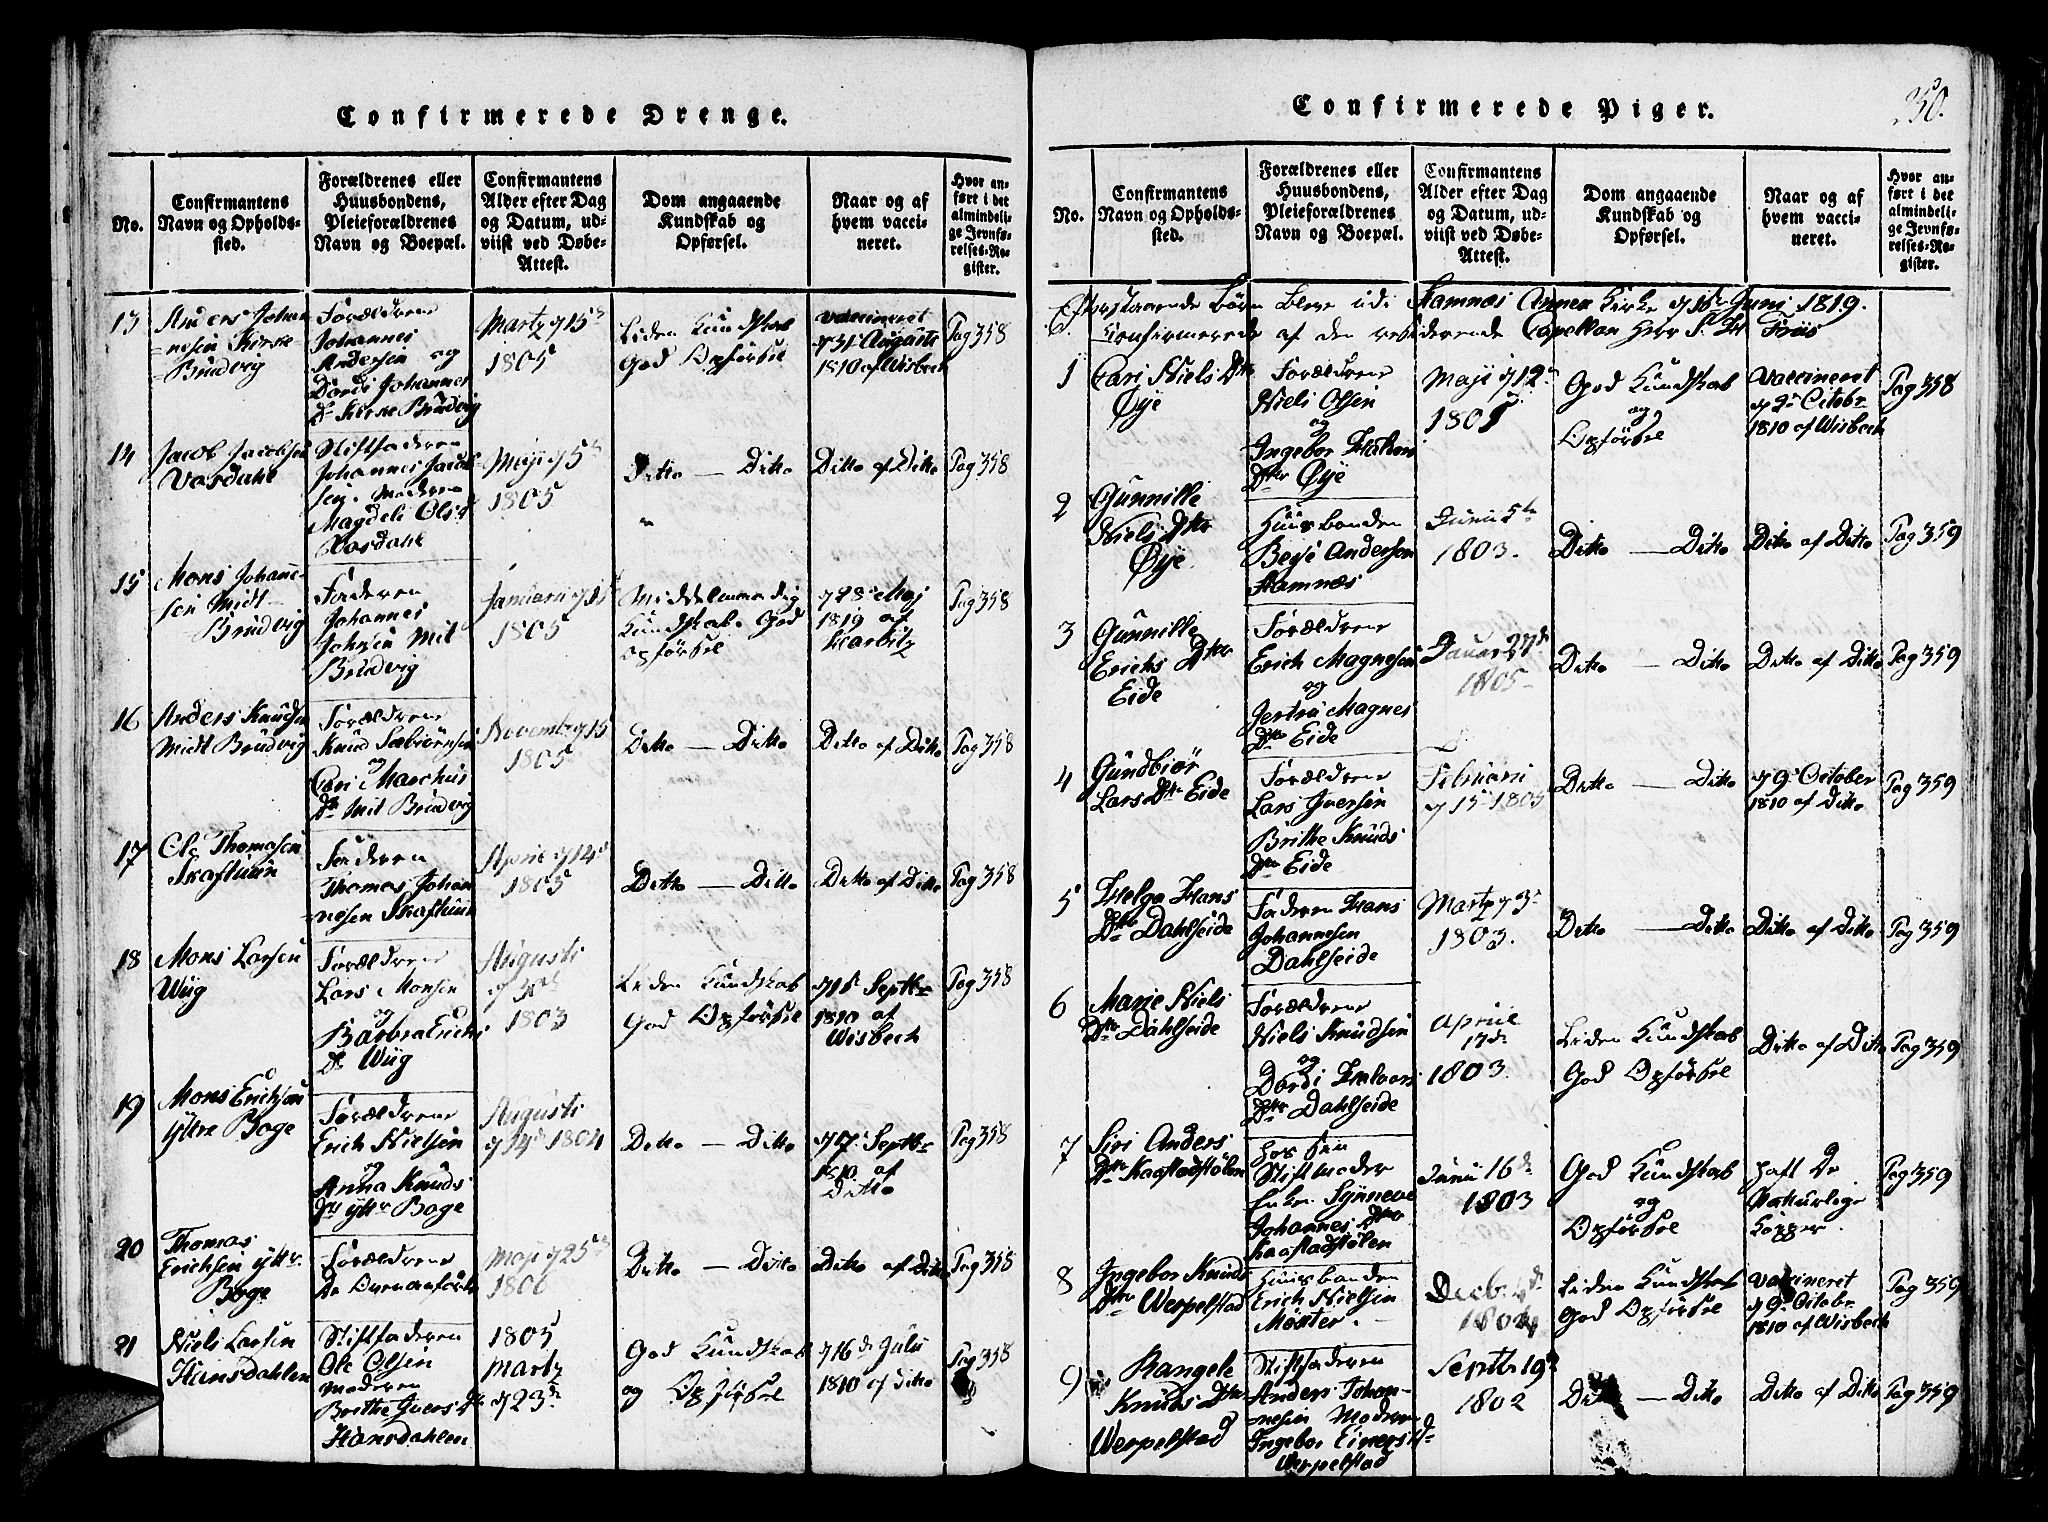 Confirmerede Drenge.
No.
Confirmantens
Navn og Opholds-
sted.
Forældrenes eller
Huusbondens,
Pleieforældrenes
Navn og Boepæl.
Confirmantens
Alder efter Dag
og Datum, ud-
viist ved Døbe-
Attest.
Dom angaaende
Kundskab og
Opførsel.
Naar og af
hvem vacci-
neret.
Hvor an-
ført i det
almindeli-
ge Jevnfø-
relses-Re-
gister.
13
Anders Johan
-nesen Kirke-
Brudvig
Forældrene
Johannes
Andersen og
Dordi Johannes
Dr Kirke Brudvig
Martz
1805
Liden Kundskab
God Opførsel
vaccineret
31 Augusti
1810 af Wisbech
Pag 358
14
Jacob Jacobsen
Vasdahl
Stiffaderen
Johannes Jacob-
sen. Moderen
Magdeli Ols Dr
Vasdahl
Maji
1805
Ditto — Ditto
Ditto af Ditto
Pag 358
15
Mons Johanne-
sen Midt-
Brudvig
Faderen
Johannes
Johnsen Mit
Brudvig
Januari
1805
Middelmaadig
Kundskab. God
opførsel
28 Maj
1819 af
Harbitz
Pag 358
16
Anders Knudsen
Midt Brudvig
Forældrene
Knud Sæbiørnsen
og
Cari Marchus
Dr Mit Brudvig
Novembr 15
1805
Ditto — Ditto
Ditto af Ditto
Pag 358
17
Ole Thomasen
Skaftuun
Faderen
Thomas Johan
-nesen Skaftuun
April 14
1805
Ditto — Ditto
Ditto af Ditto
Pag 358
18
Mons Larsen
Wiig
Forældrene
Lars Monsen
og
Barbra Erichs
Dr Wiig
Augusti
1803
Liden Kundskab
God Opførsel
Septbr
1810 af
Wisbech
Pag 358
19
Mons Erichsen
ÿttre Boge
Forældrene
Erich Nielsen
og
Anna Knuds
Dr ÿttr Boge
Augusti
1804
Ditto — Ditto
Septbr
1810 af
Ditto
Pag 358
20
Thomas
Erichsen ÿttr.
Boge
Forældrene
De Ovenanførte
Maji 25
1800
Ditto — Ditto
Ditto af Ditto
Pag 358
21
Niels Larsen
Hansdahlen
Stiffaderen
Ole Olsen
Moderen
Brithe Ivers Dr
Hansdahlen
1805
Martz
23
God Kundskab
og Opførsel
16 Juli
1810 af Ditto
Pag 358
Confirmerede Piger.
350.
No.
Confirmantens
Navn og Opholds-
sted.
Forældrenes eller
Huusbondens,
Pleieforældrenes
Navn og Boepæl.
Confirmantens
Alder efter Dag
og Datum, ud-
viist ved Døbe-
Attest.
Dom angaaende
Kundskab og
Opførsel.
Naar og af
hvem vacci-
neret.
Hvor an-
ført i det
almindeli-
ge Jevnfø-
relses-Re-
gister.
Efterstaaende Børn Bleve udi Stamnæs Annex Kirke Juni 1819.
Confirmerede af den residerende Capellan Herr Friis
1
Cari Niels Dtr
Øÿe
Forældrene
Niels Olsen
og
Ingebor Haldors
Dtr Øÿe
Maji 12
1805
God Kundskab
og
Opførsel
Vaccineret
9 Octobr
1810 af Wisbech
Pag 358
2
Gunnille
Niels Dtr
Øÿe
Huusbonden
Berje Andersen
Stamnæs
Juni 5
1803.
Ditto — Ditto
Ditto af Ditto
Pag 359
3
Gunnille
Erichs Dtr
Eide
Forældrene
Erich Magnesen
og
Jertru Magnes
Dtr Eide
Januar 27
1805
Ditto — Ditto
Ditto af Ditto
Pag 359
4
Gundbiør
Lars Dtr Eide
Forældrene
Lars Iversen
Brithe Knuds
Dtr Eide
Februari
15 1805
Ditto — Ditto
9 October
1810 af Ditto
Pag 359
5
Helga Hans
Dtr Dahlseide
Faderen Hans
Johannesen
Dahlseide
Martz 3
1803.
Ditto — Ditto
Ditto af Ditto
Pag 359
6
Marie Niels
Dtr Dahlseide
Forældrene
Niels Knudsen
og
Dordi Halvors
Dtr Dahlseide
April
17
1803.
Liden Kundskab
God Opførsel
Ditto af Ditto
Pag 359
7
Siri Anders
Dtr Kaastadstølen
hos sin
Stifmoder
Enken Sÿnneve
Johannes Dtr
Kaastadstølen
Juni 16
1803
God Kundskab
og
Opførsel
haft De
Naturlige
Kopper.
Pag 359
8
Ingebor Knuds
Dtr Werpelstad
Huusbonden
Erich Nielsen
Møster.
Decb.
1802
Liden Kundskab
God Opførsel
Vaccineret
9 Octobr
1810 af Wisbech
Pag 359
9
Rangele
Knuds Dtr
Werpelstad
Stiffaderen
Anders Johan-
-nesen Moderen
Ingebor Einers D
Werpelstad
Septbr 19
1802
Ditto — Ditto
Ditto af Ditto
Pag 359